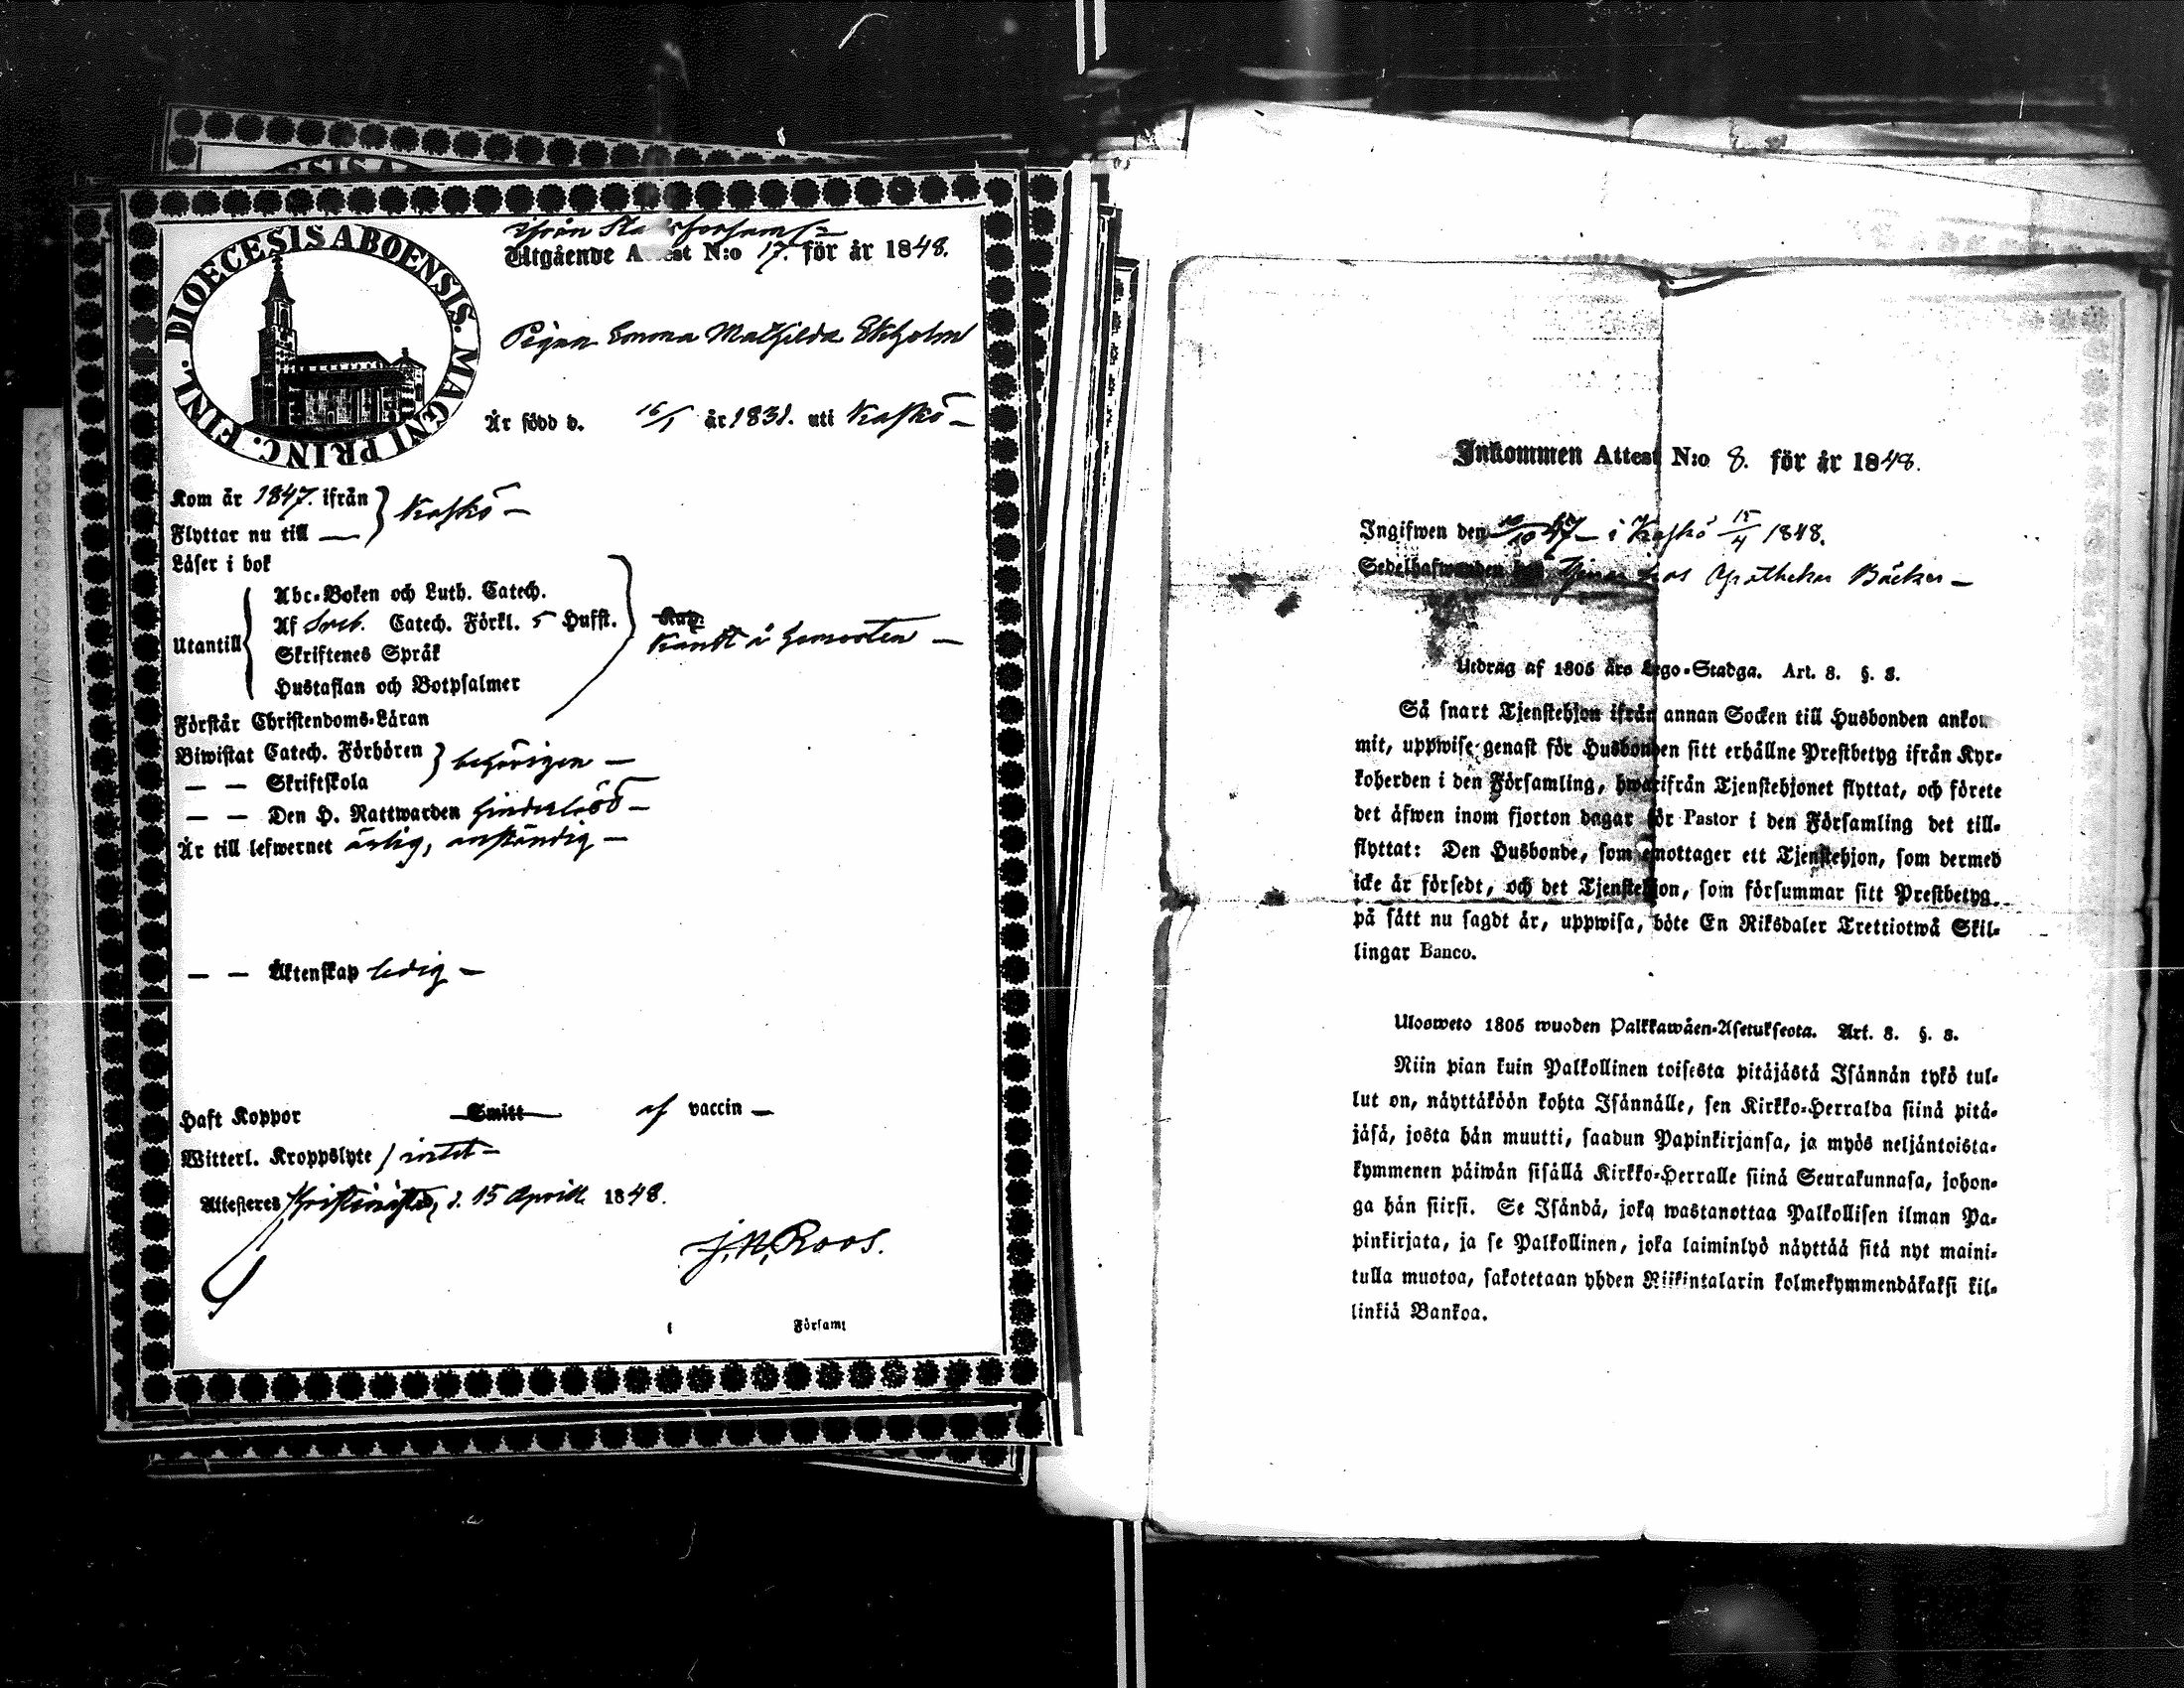 DIOECESIS ABOENSIS. MAGNI PRINC. FINL.
ifrån
Utgående Attest N:o 17. för år 1848.
Pigan Emma Mathilda Ekholm
Är född d. 16/1 år 1831. uti Kaskö –
Kom år 1847. ifrån
Flyttar nu till —
Kaskö –
Läser i bok
Abc-Boken och Luth. Catech.
Af Sveb. Catech. Förkl. 5 Hufst.
Utantill
Skriftenes Språk
Hustaflan och Botpsalmer
å hemorten —
Förstår Christendoms-Läran
Biwistat Catech. Förhören
behörigen —
— — Skriftskola
— — Den H. Nattwarden hinderlöst —
Är till lefwernet ärlig, anständig —
— — Äktenskap ledig —
Haft Koppor Smitt af vaccin —
Witterl. Kroppslyte / intet –
Attesteras Kristinestad, d. 15 April 1848.
J. N. Roos.
i Församl
Inkommen Attest N:o 8. för år 1848.
Ingifwen den i Kaskö 15/4 1848.
Sedelhafwanden Apothekar Bäcker —
Utdrag af 1805 års Lego-Stadga. Art. 8. §. 3.
Så snart Tjenstehjon ifrån annan Socken till Husbonden ankom
mit, uppwise genast för Husbonden sitt erhållne Prestbetyg ifrån Kyr-
koherden i den Församling, hwarifrån Tjenstehjonet flyttat, och förete
det äfwen inom fjorton dagar för Pastor i den Församling det till-
flyttat: Den Husbonde, som emottager ett Tjenstehjon, som dermed
icke är försedt, och det Tjenstehjon, som försummar sitt Prestbetyg,
på sätt nu sagdt är, uppwisa, böte En Riksdaler Trettiotwå Skil-
lingar Banco.
Ulosweto 1805 wuoden Palkkawäen-Asetuksesta. Art. 8. §. 3.
Niin pian kuin Palkollinen toisesta pitäjästä Isännän tykö tul-
lut on, näyttäköön kohta Isännälle, sen Kirkko-Herralda siinä pitä-
jäsä, josta hän muutti, saadun Papinkirjansa, ja myös neljäntoista-
kymmenen päiwän sisällä Kirkko-Herralle siinä Seurakunnasa, johon-
ga hän siirsi. Se Isändä, joka wastanottaa Palkollisen ilman Pa-
pinkirjata, ja se Palkollinen, joka laiminlyö näyttää sitä nyt maini-
tulla muotoa, sakotetaan yhden Riikintalarin kolmekymmendäkaksi kil-
linkiä Bankoa.